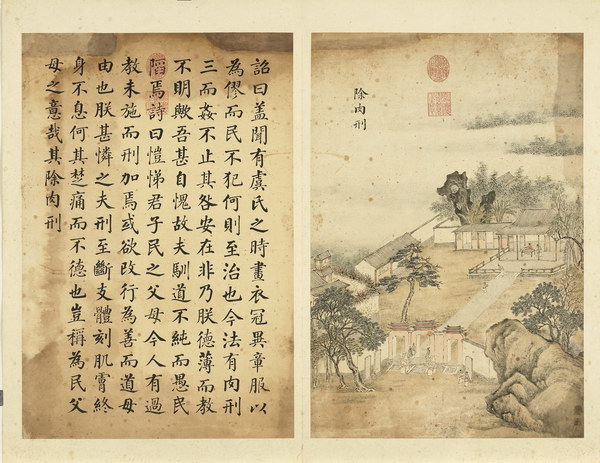 除肉刑
詔曰蓋聞有虞氏之時畫衣冠異章服以
為僇而民不犯何則至治也今法有肉刑
三而姦不止其咎安在非乃朕德薄而教
不明歟吾甚自愧故夫馴道不純而愚民
陷焉詩曰愷悌君子民之父母今人有過
教未施而刑加焉或欲改行為善而道毋
由也朕甚憐之夫刑至斷支體刻肌膚終
身不息何其楚痛而不德也豈稱為民父
母之意哉其除肉刑